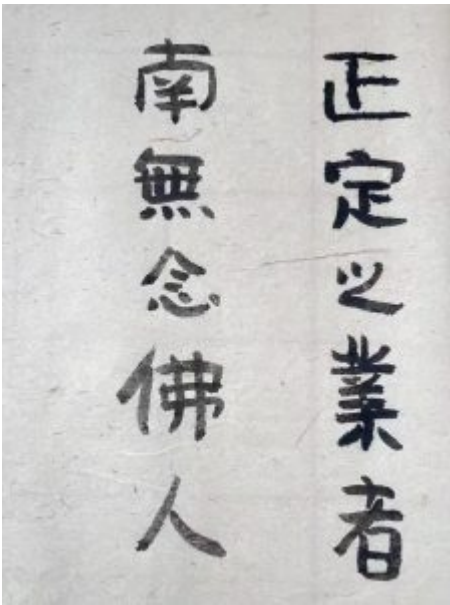 正定之業者
南無念佛人